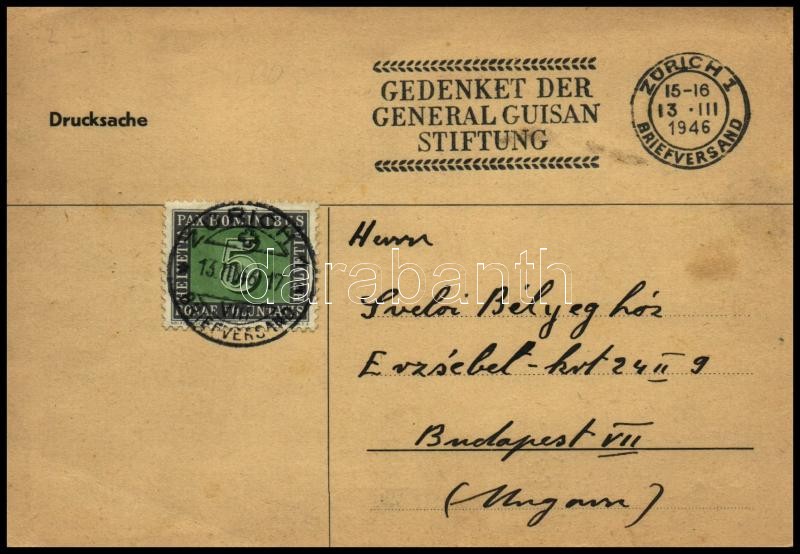 GEDENKET DER
GENERAL GUISAN
STIFTUNG
ZÜRICH 1
15-16
13.III
1946
BRIEFVERSAND
Drucksache
PAX HOMINIBUS
HELVETIA
5
BONAE VOLUNTATIS
ZÜRICH
13.III
BRIEFVERSAND
darabanth
Herrn
Bélyeg ház
Erzsébet-krt 24 II 9
Budapest VII
(Ungarn)